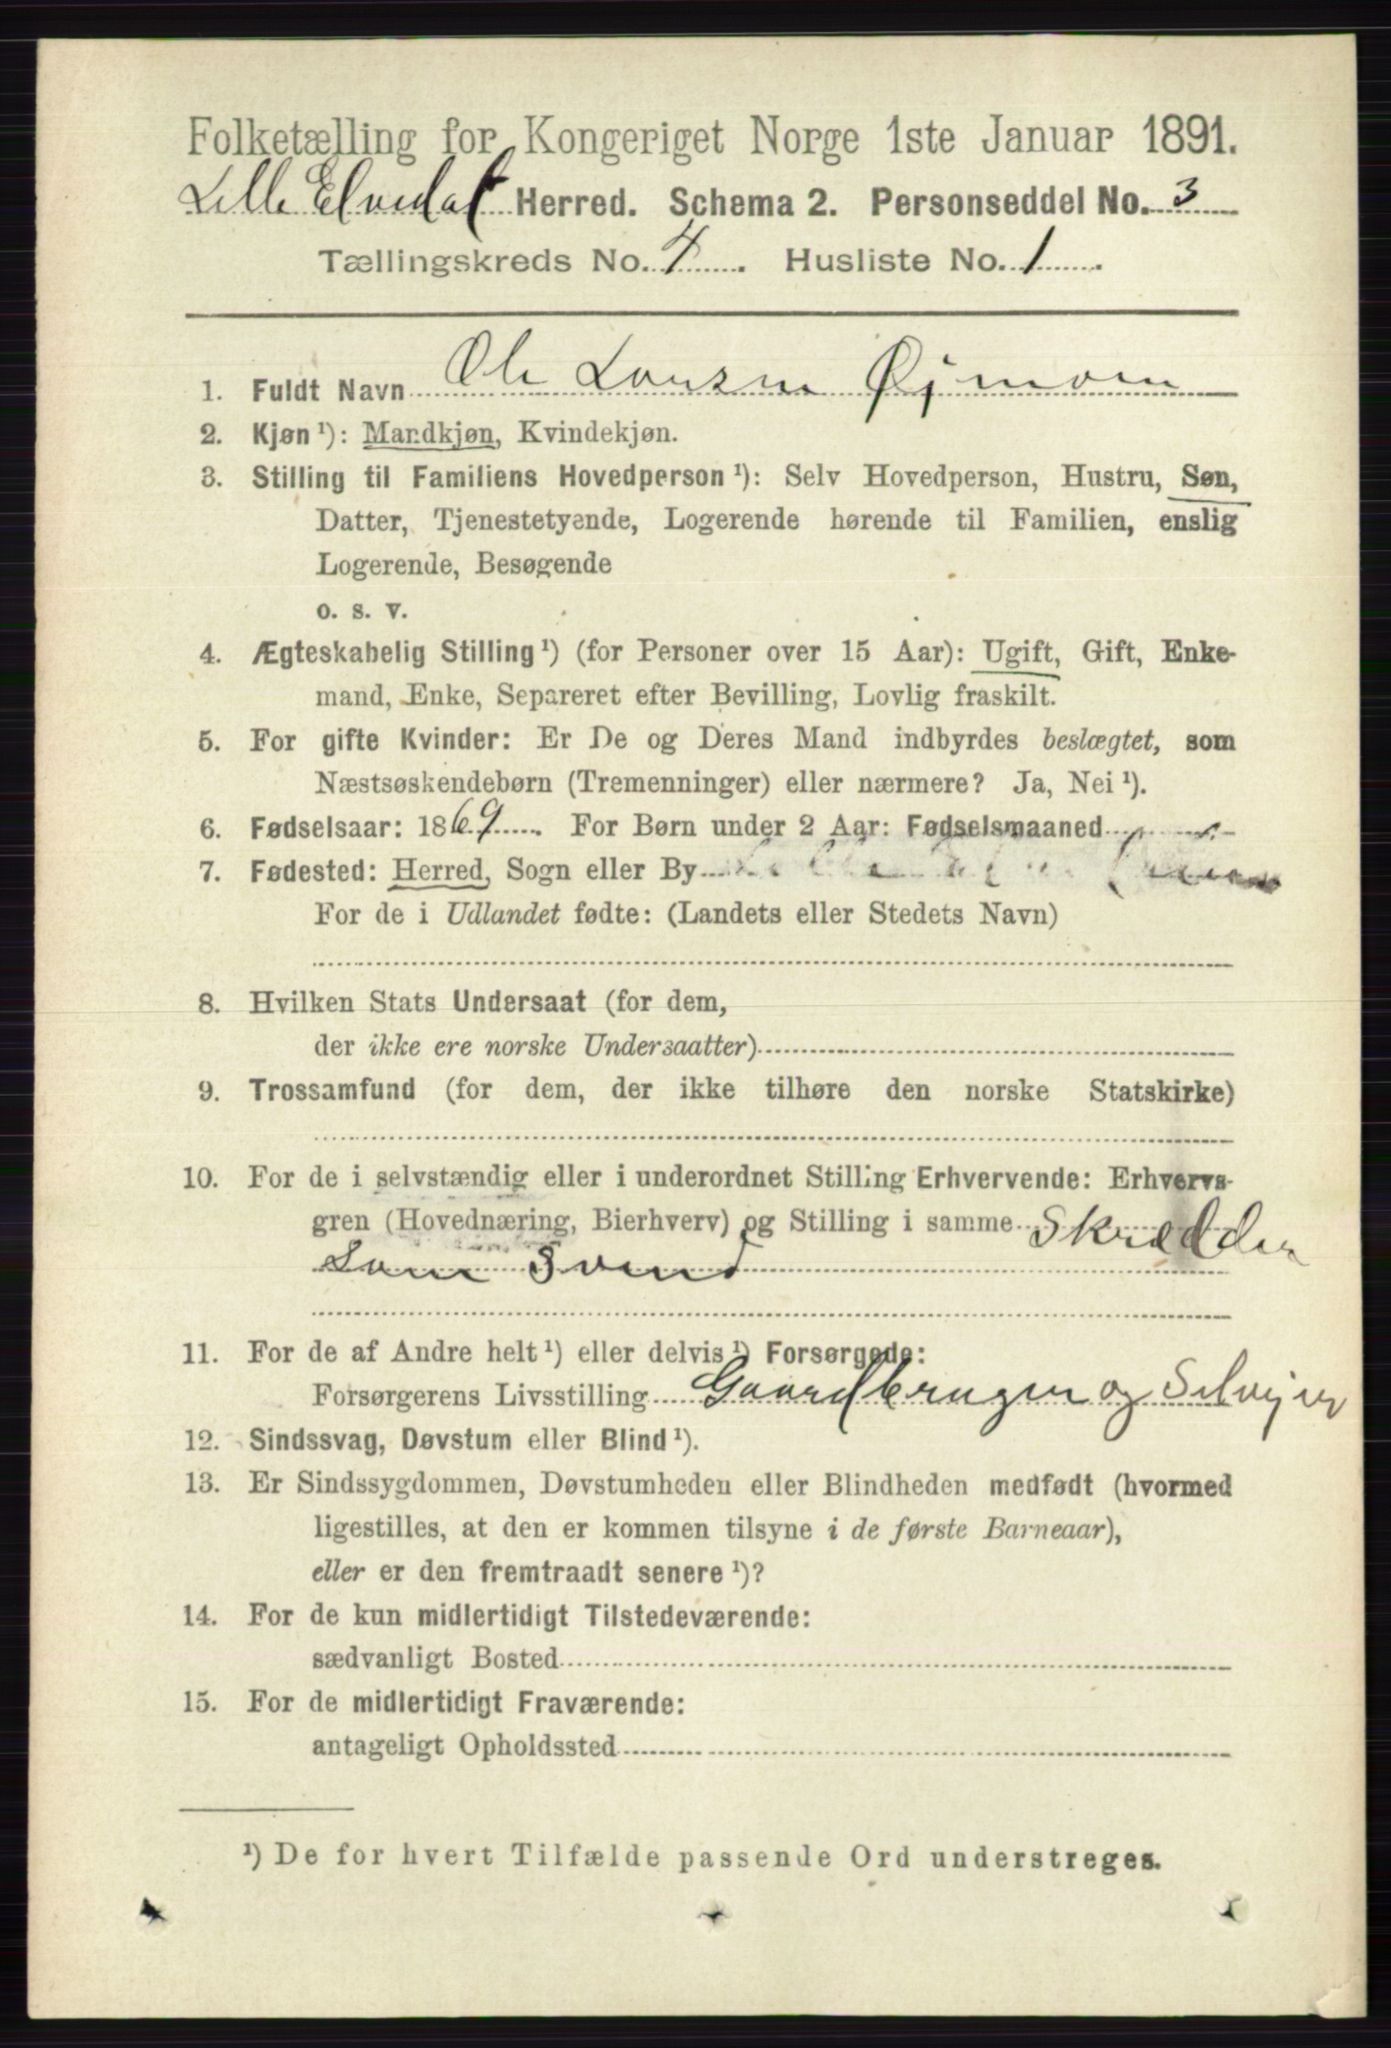 Folketælling for Kongeriget Norge 1ste Januar 1891.
Lille Elvedal Herred. Schema 2. Personseddel No. 3
Tællingskreds No. 4. Husliste No. 1.
1. Fuldt Navn Ole Larsen Øjmoen
2. Kjøn ¹): Mandkjøn, Kvindekjøn.
3. Stilling til Familiens Hovedperson ¹): Selv Hovedperson, Hustru, Søn,
Datter, Tjenestetyende, Logerende hørende til Familien, enslig
Logerende, Besøgende
o. s. v.
4. Ægteskabelig Stilling ¹) (for Personer over 15 Aar): Ugift, Gift, Enke-
mand, Enke, Separeret efter Bevilling, Lovlig fraskilt.
5. For gifte Kvinder: Er De og Deres Mand indbyrdes beslægtet, som
Næstsøskendebørn (Tremenninger) eller nærmere? Ja, Nei ¹).
6. Fødselsaar: 1869. For Børn under 2 Aar: Fødselsmaaned
7. Fødested: Herred, Sogn eller By
For de i Udlandet fødte: (Landets eller Stedets Navn)
8. Hvilken Stats Undersaat (for dem,
der ikke ere norske Undersaatter)
9. Trossamfund (for dem, der ikke tilhøre den norske Statskirke)
10. For de i selvstændig eller i underordnet Stilling Erhvervende: Erhvervs-
gren (Hovednæring, Bierhverv) og Stilling i samme Skrædder
Som Svend
11. For de af Andre helt ¹) eller delvis ¹) Forsørgede:
Forsørgerens Livsstilling Gaardbruger og Selvejer
12. Sindssvag, Døvstum eller Blind ¹).
13. Er Sindssygdommen, Døvstumheden eller Blindheden medfødt (hvormed
ligestilles, at den er kommen tilsyne i de første Barneaar),
eller er den fremtraadt senere ¹)?
14. For de kun midlertidigt Tilstedeværende:
sædvanligt Bosted
15. For de midlertidigt Fraværende:
antageligt Opholdssted
¹) De for hvert Tilfælde passende Ord understreges.